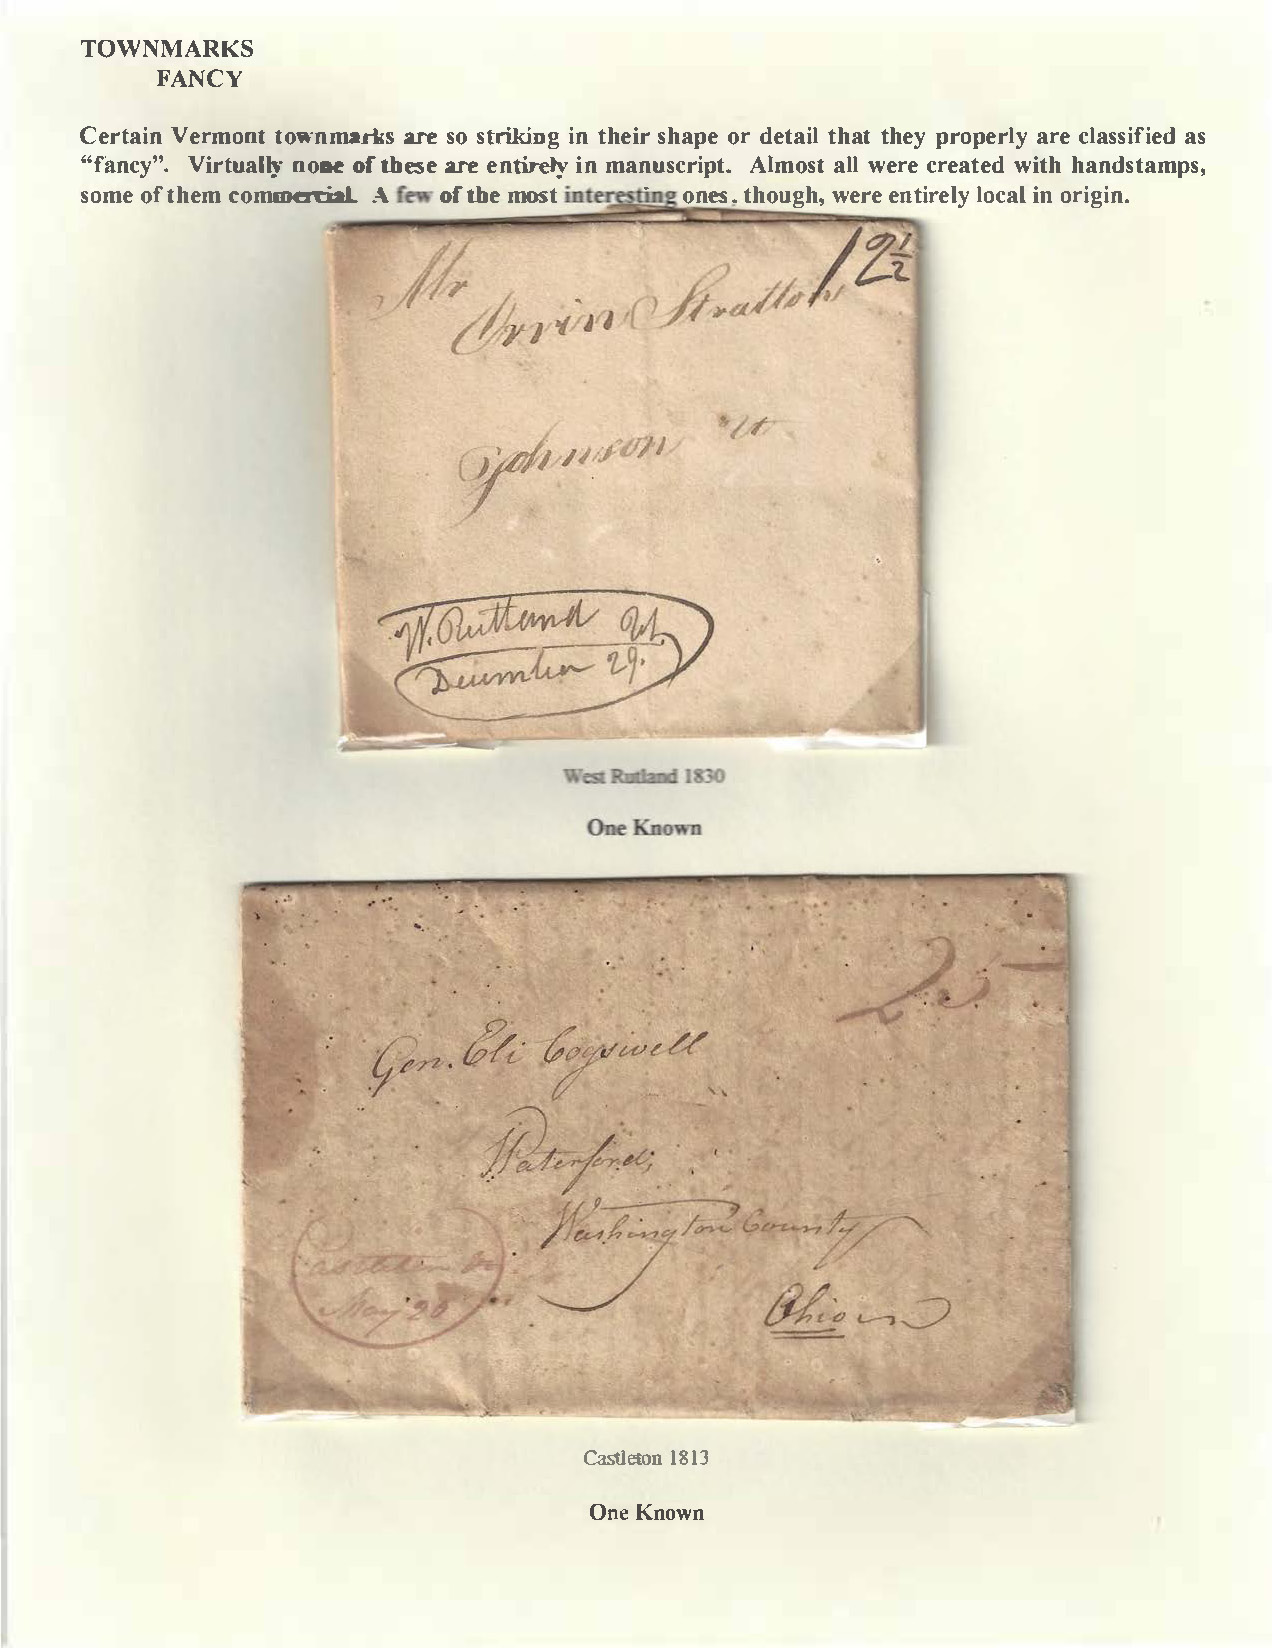 TOWNMARKS
FANCY
Certain Vermont townmarks are so striking in their shape or detail that they properly are classified as
“fancy”. Virtually none of these are entirely in manuscript. Almost all were created with handstamps,
some of them commercial. A few of the most interesting ones, though, were entirely local in origin.
12½
Mr
Orvin Stratton
Johnson Vt
W. Rutland Vt.
December 29.
West Rutland 1830
One Known
25
Gen. Eli Cogswell
Waterford,
Washington County
Ohio
Castleton Vt
May 26
Castleton 1813
One Known